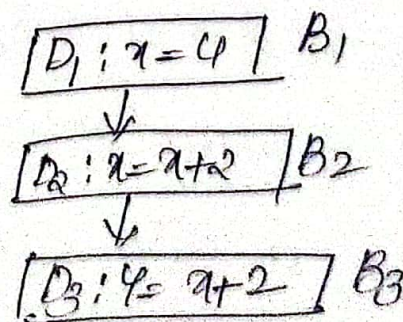 D1 : x = 4 B1
D2 : x = x+2 B2
D3 : y = x+2 B3